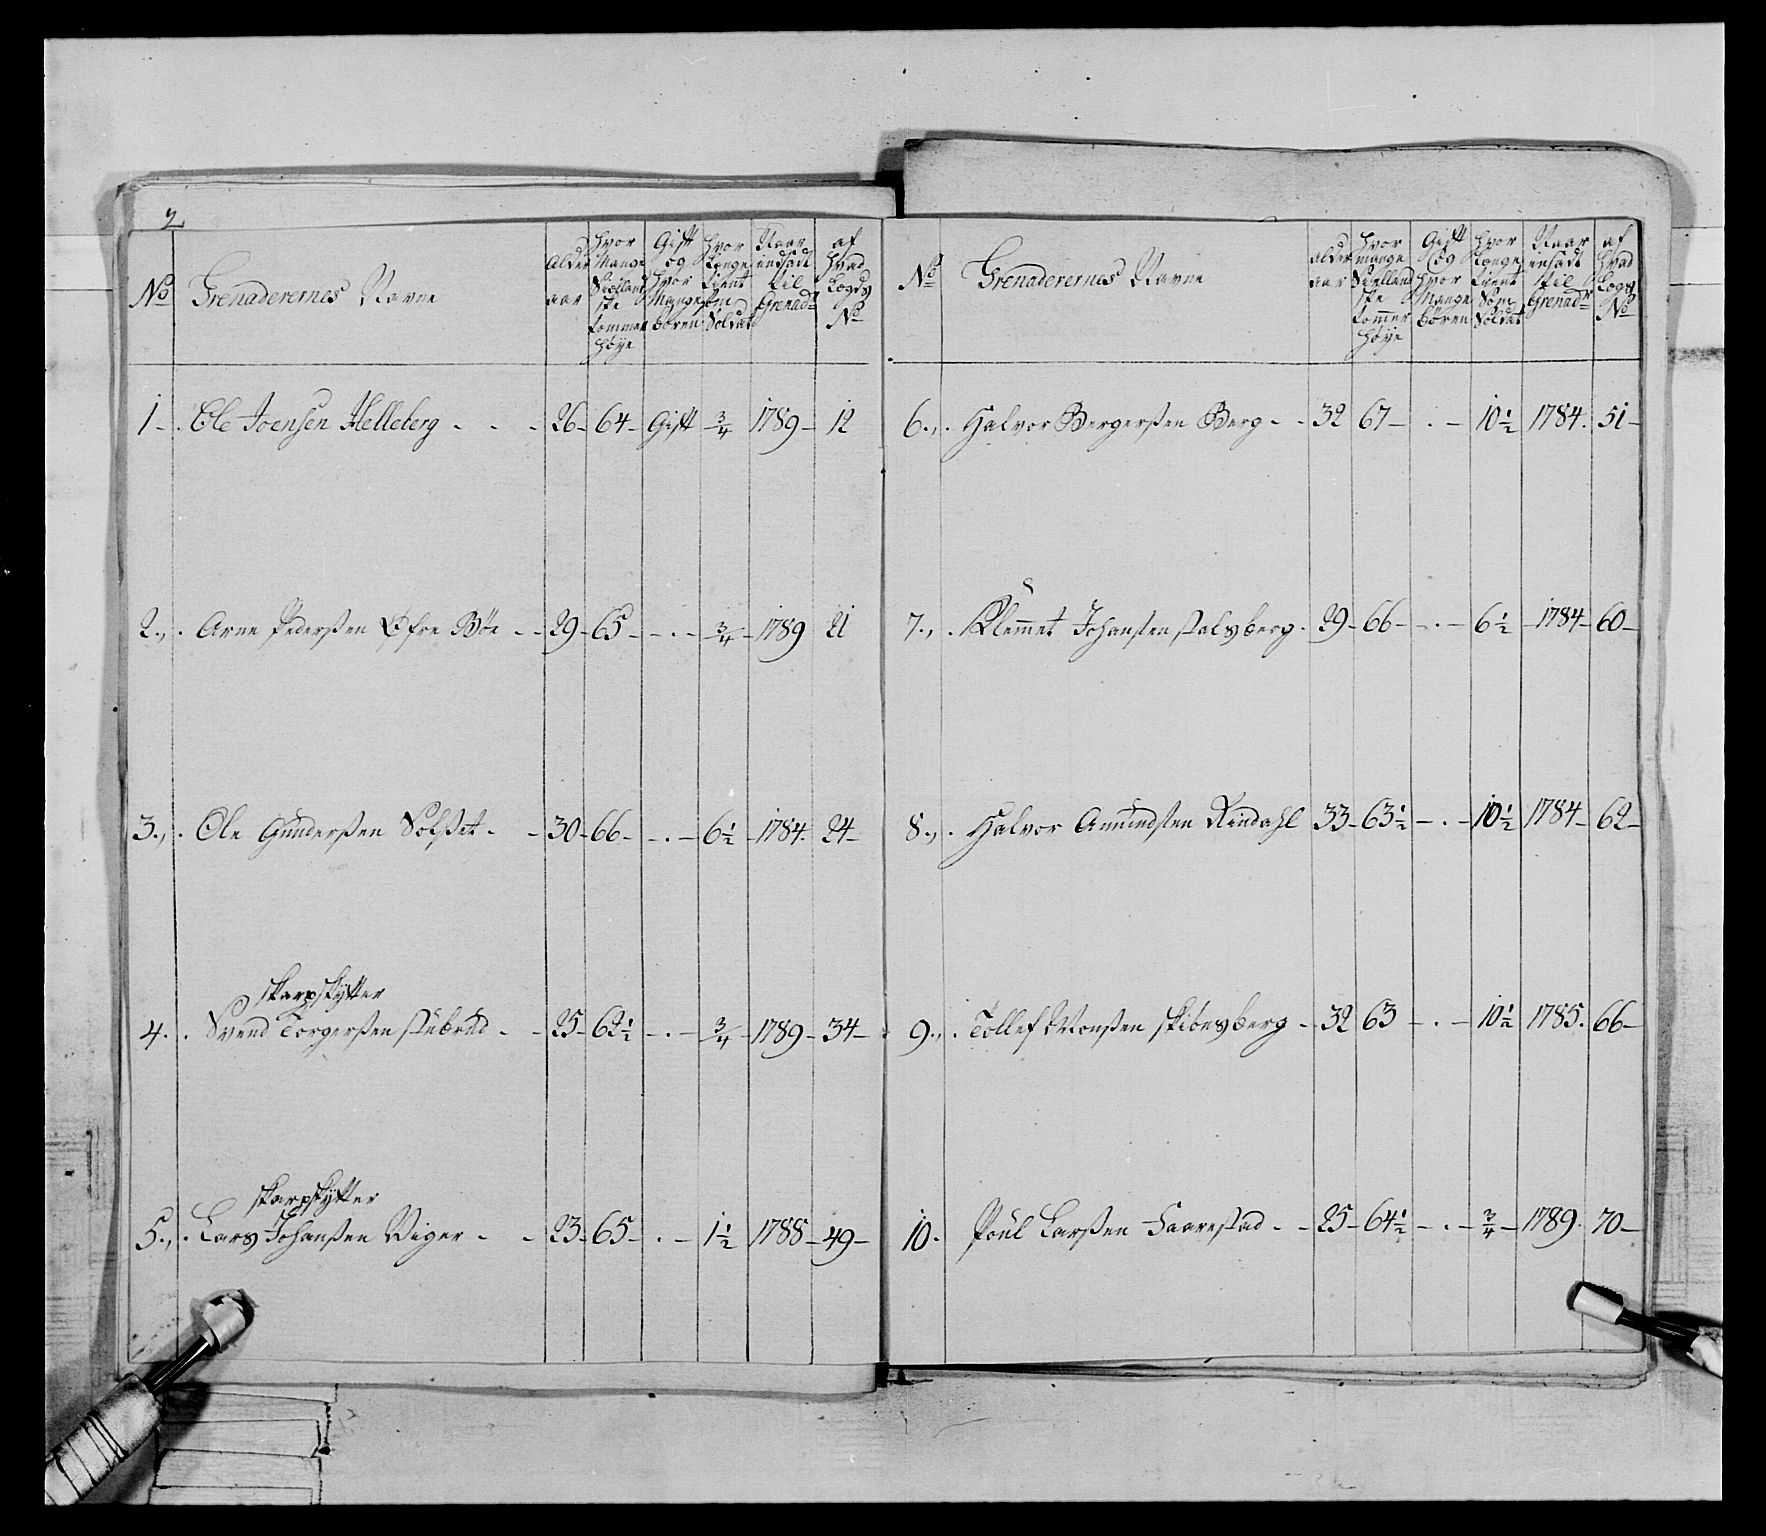 2
No Grenaderernes Navne Alder aar hvor Mange Siællandske tommer høye Gift og hvor Mange børen hvor længe tient som Soldat Naar indsadt til Grenadr af hvad Lægds No
1 Ole Joensen Helleberg 26 64 Gift 3/4 1789 12
2 Arne Pedersen Øfre Bøe 29 65 3/4 1789 21
3 Ole Gundersen Solset 30 66 6 1/2 1784 24
skarpskytter
4 Svend Torgersen Stubrud 25 62 1/2 3/4 1789 34
skarpskytter
5 Lars Johansen Viger 23 65 1 1/2 1788 49
No Grenaderernes Navne alder aar hvor mange Siællandske tommer høye Gift og hvor Mange børen hvor længe tient Som Soldat Naar insadt til Grenadr af hvad Lægds No
6 Halvor Bergersen Berg 32 67 10 1/2 1784 51
7 Klemmet Johansen Stalsberg 29 66 6 1/2 1784 60
8 Halvor Amundsen Rindahl 33 63 1/2 10 1/2 1784 62
9 Tollef Monsen Skiønsberg 32 63 10 1/2 1785 66
10 Poul Larsen Saarestad 25 64 1/2 3/4 1789 70